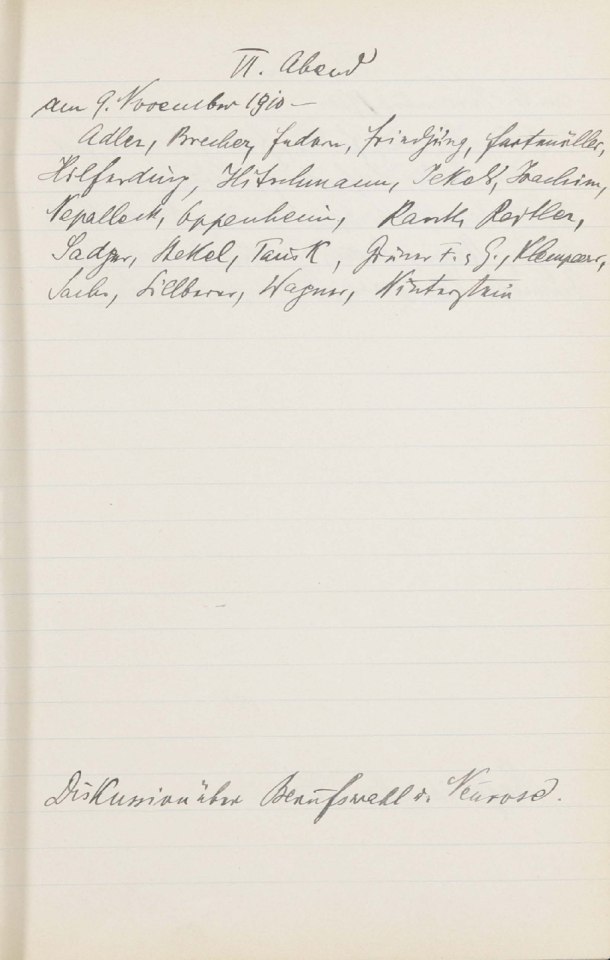 VI. Abend
am 9. November 1910 —
Adler, Brecher, Federn, Friedjung, Furtmüller,
Hilferding, Hitschmann, Jekels, Joachim,
Nepalleck, Oppenheim, Rank, Reitler,
Sadger, Stekel, Tausk, Grüner F. & G., Klemperer,
Sachs, Silberer, Wagner, Winterstein
Diskussion über Berufswahl u. Neurose.